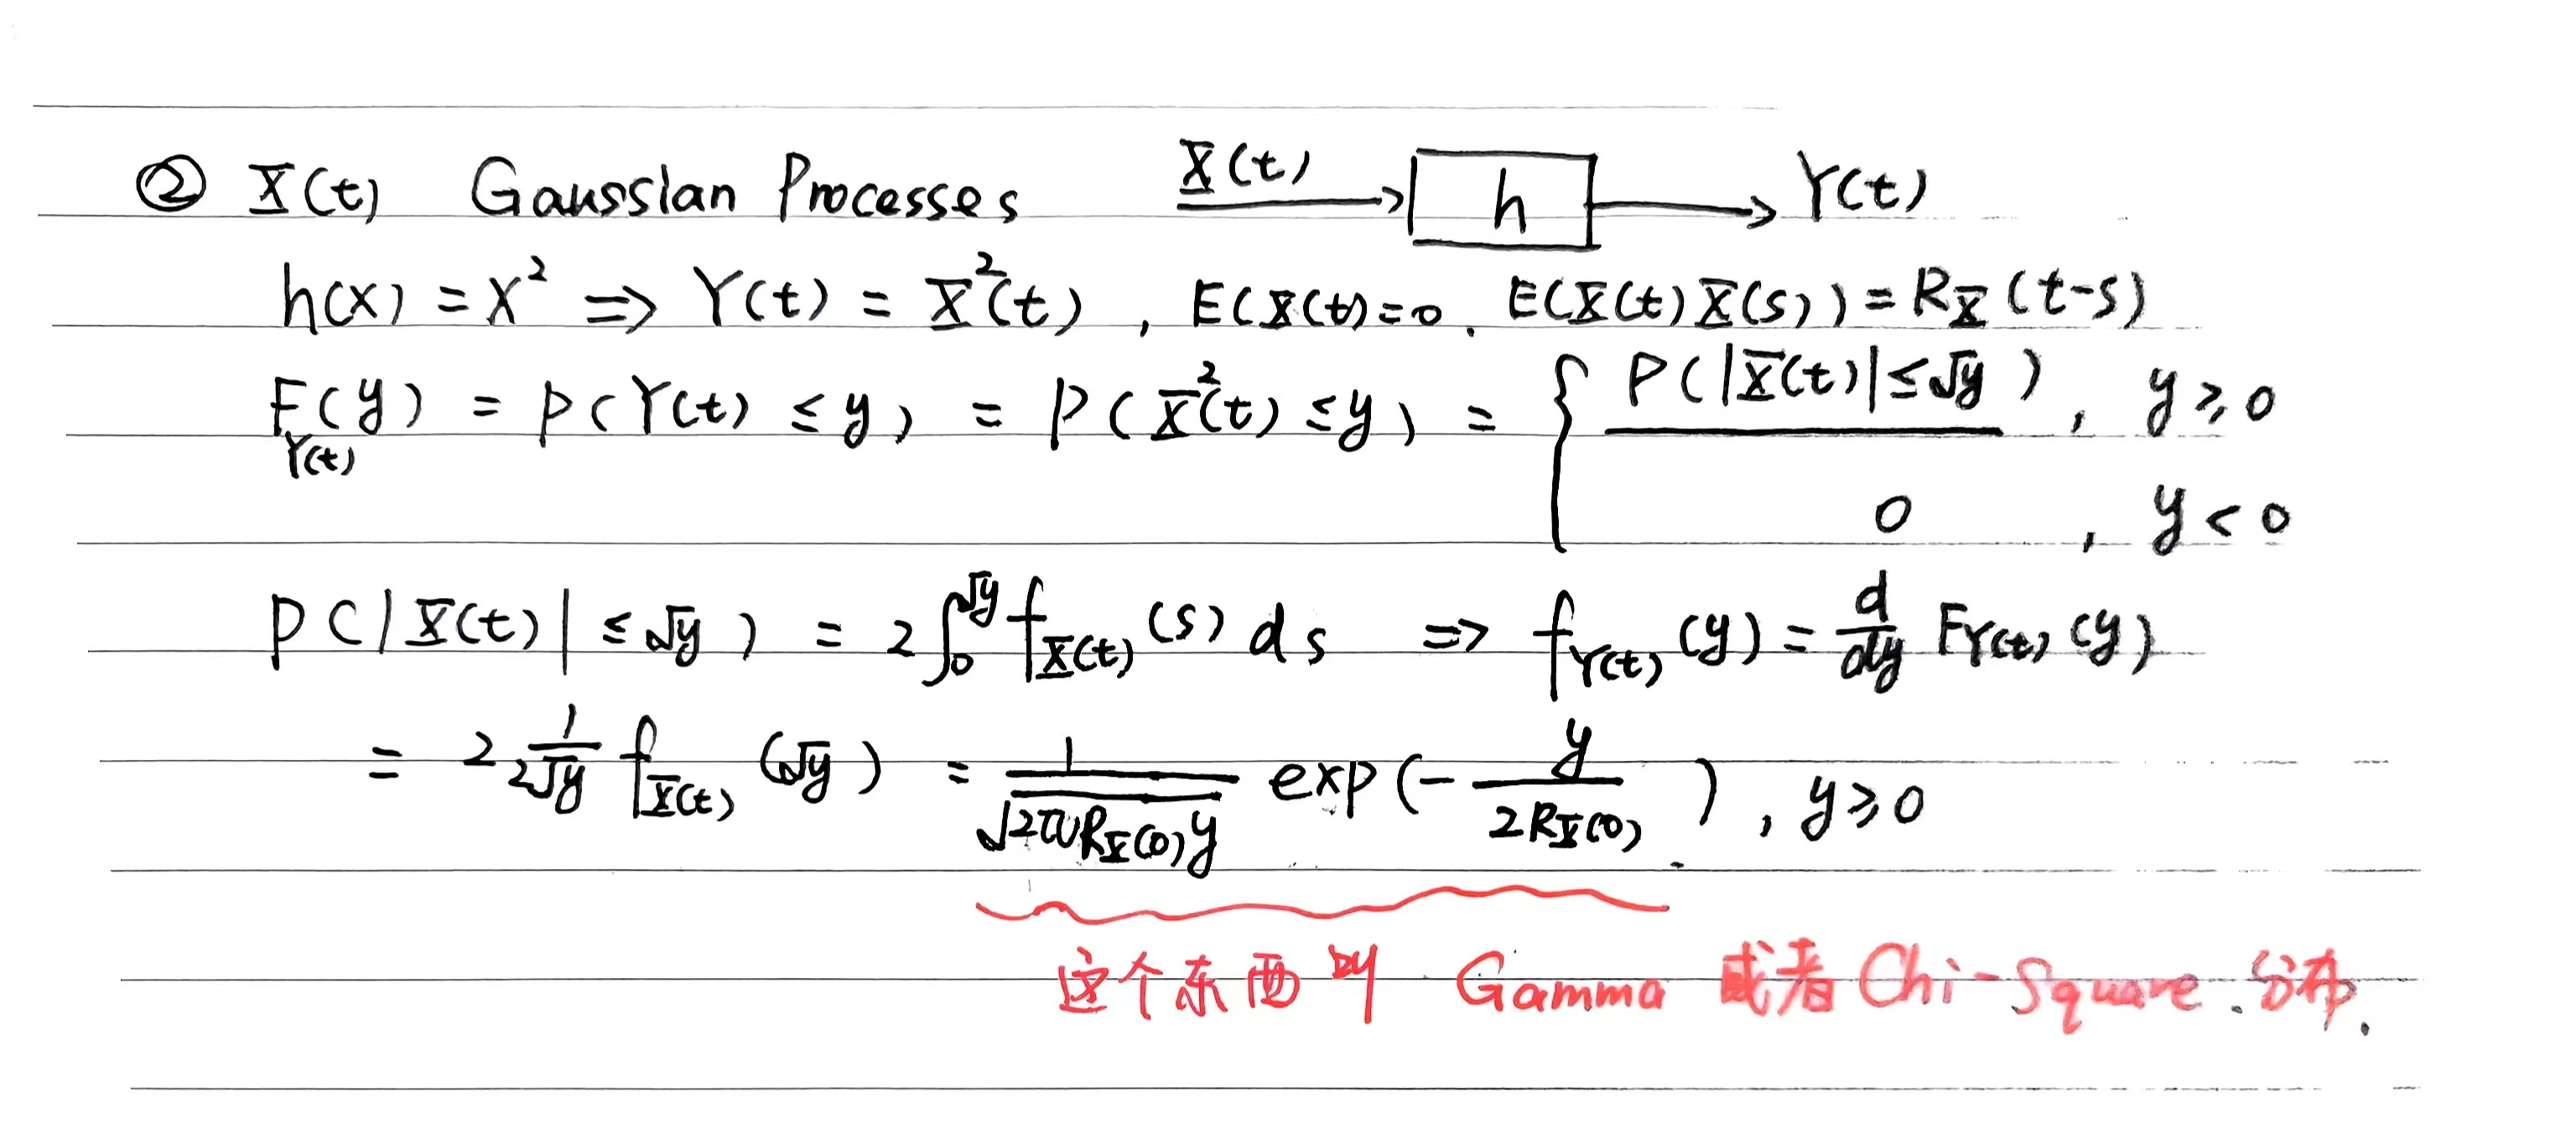 ② X(t) Gaussian Processes X(t) → h → Y(t)
h(x) = x² ⇒ Y(t) = X²(t) , E(X(t)=0 . E(X(t)X(s)) = R_X(t-s)
F_Y(t)(y) = P(Y(t) ≤ y) = P(X²(t) ≤ y) = { P(|X(t)| ≤ √y) , y ≥ 0
0 , y < 0
P(|X(t)| ≤ √y) = 2∫₀^√y f_X(t)(s) ds ⇒ f_Y(t)(y) = d/dy F_Y(t)(y)
= 2 1/(2√y) f_X(t)(√y) = 1/√(2πR_X(0)y) exp(- y/(2R_X(0))) , y ≥ 0
这个东西叫 Gamma 或者 Chi-Square.分布.